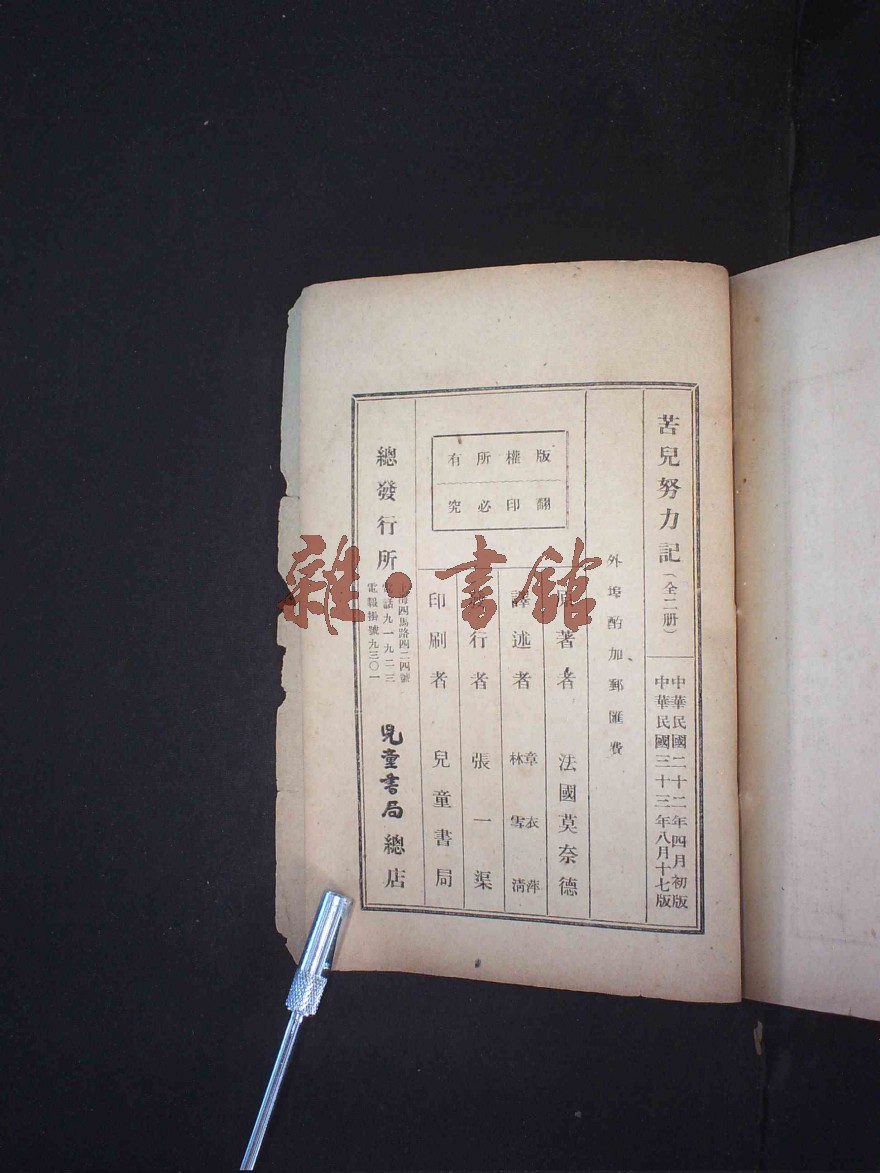 苦兒努力記(全二册)
中華民國二十二年四月初版
中華民國三十三年八月十七版
外埠酌加郵匯費
版權所有
翻印必究
原著者 法國莫奈德
譯述者 章衣萍 林雪清
發行者 張一渠
印刷者 兒童書局
總發行所 兒童書局總店
上海四馬路四二四號
電話九一九二三
電報掛號九三〇一
雜·書館